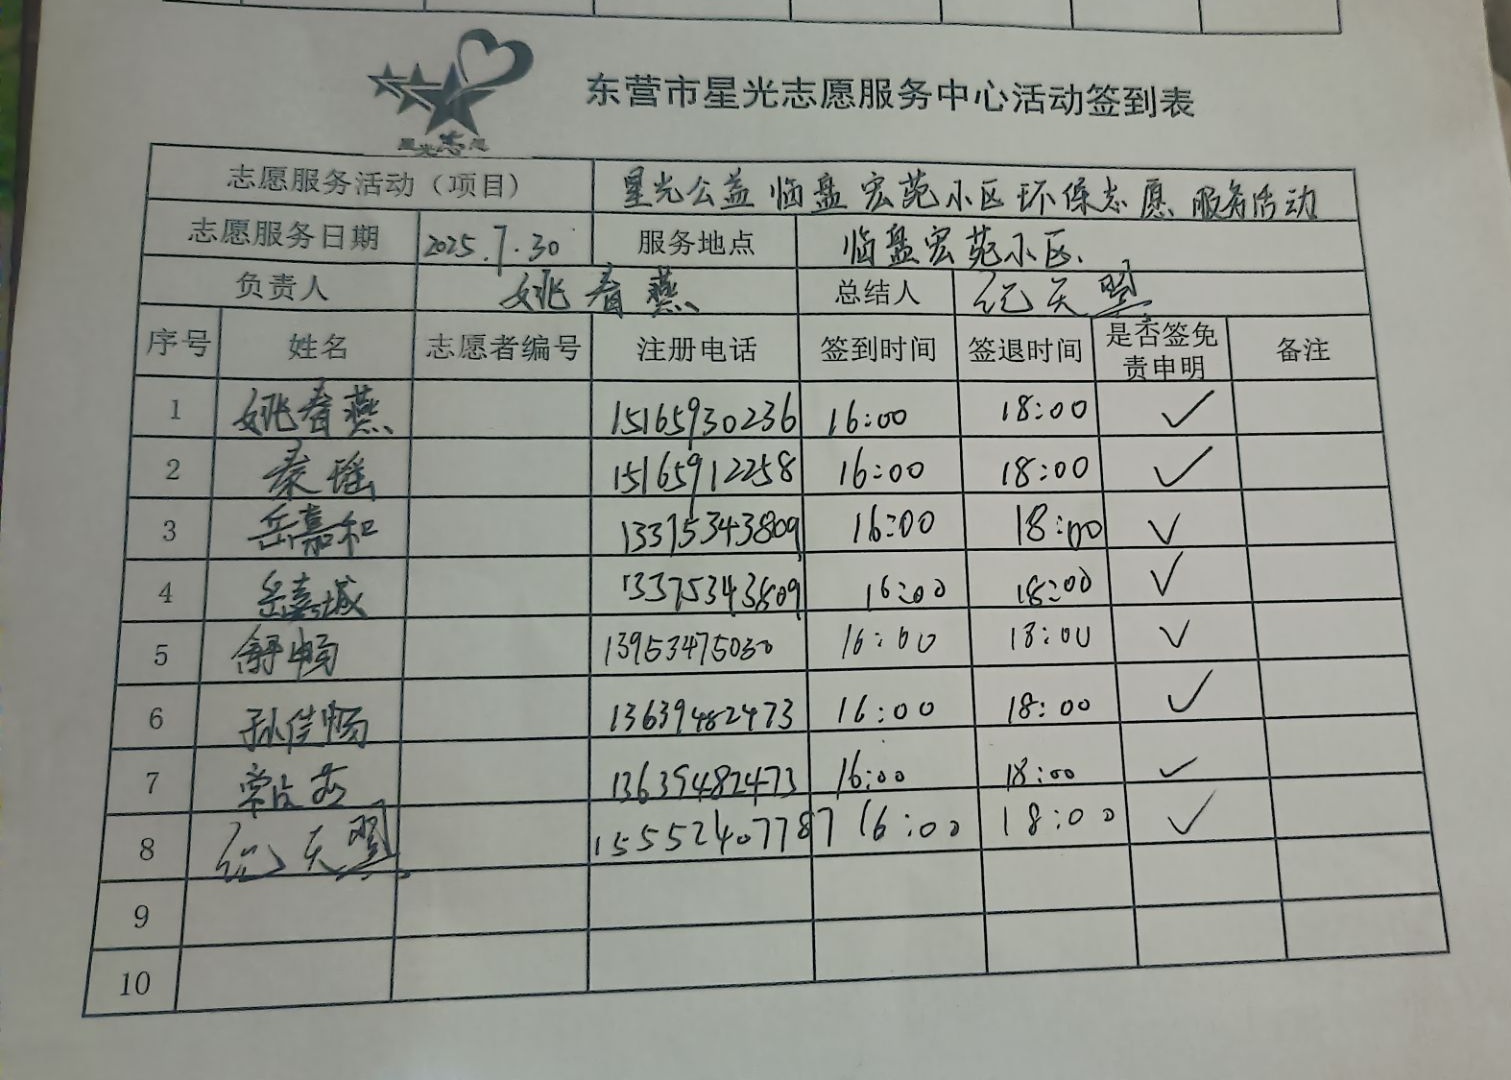 星光志愿
东营市星光志愿服务中心活动签到表
志愿服务活动（项目） 星光公益临盘宏苑小区环保志愿服务活动
志愿服务日期 2025.7.30 服务地点 临盘宏苑小区.
负责人 姚春燕 总结人 纪天盟
序号 姓名 志愿者编号 注册电话 签到时间 签退时间 是否签免责申明 备注
1 姚春燕 15165930236 16:00 18:00 ✓
2 秦瑶 15165912258 16:00 18:00 ✓
3 岳嘉和 13375343809 16:00 18:00 ✓
4 岳嘉城 13375343809 16:00 18:00 ✓
5 舒畅 13953475030 16:00 18:00 ✓
6 孙佳畅 13639482473 16:00 18:00 ✓
7 13639482473 16:00 18:00 ✓
8 纪天盟 15552407787 16:00 18:00 ✓
9
10